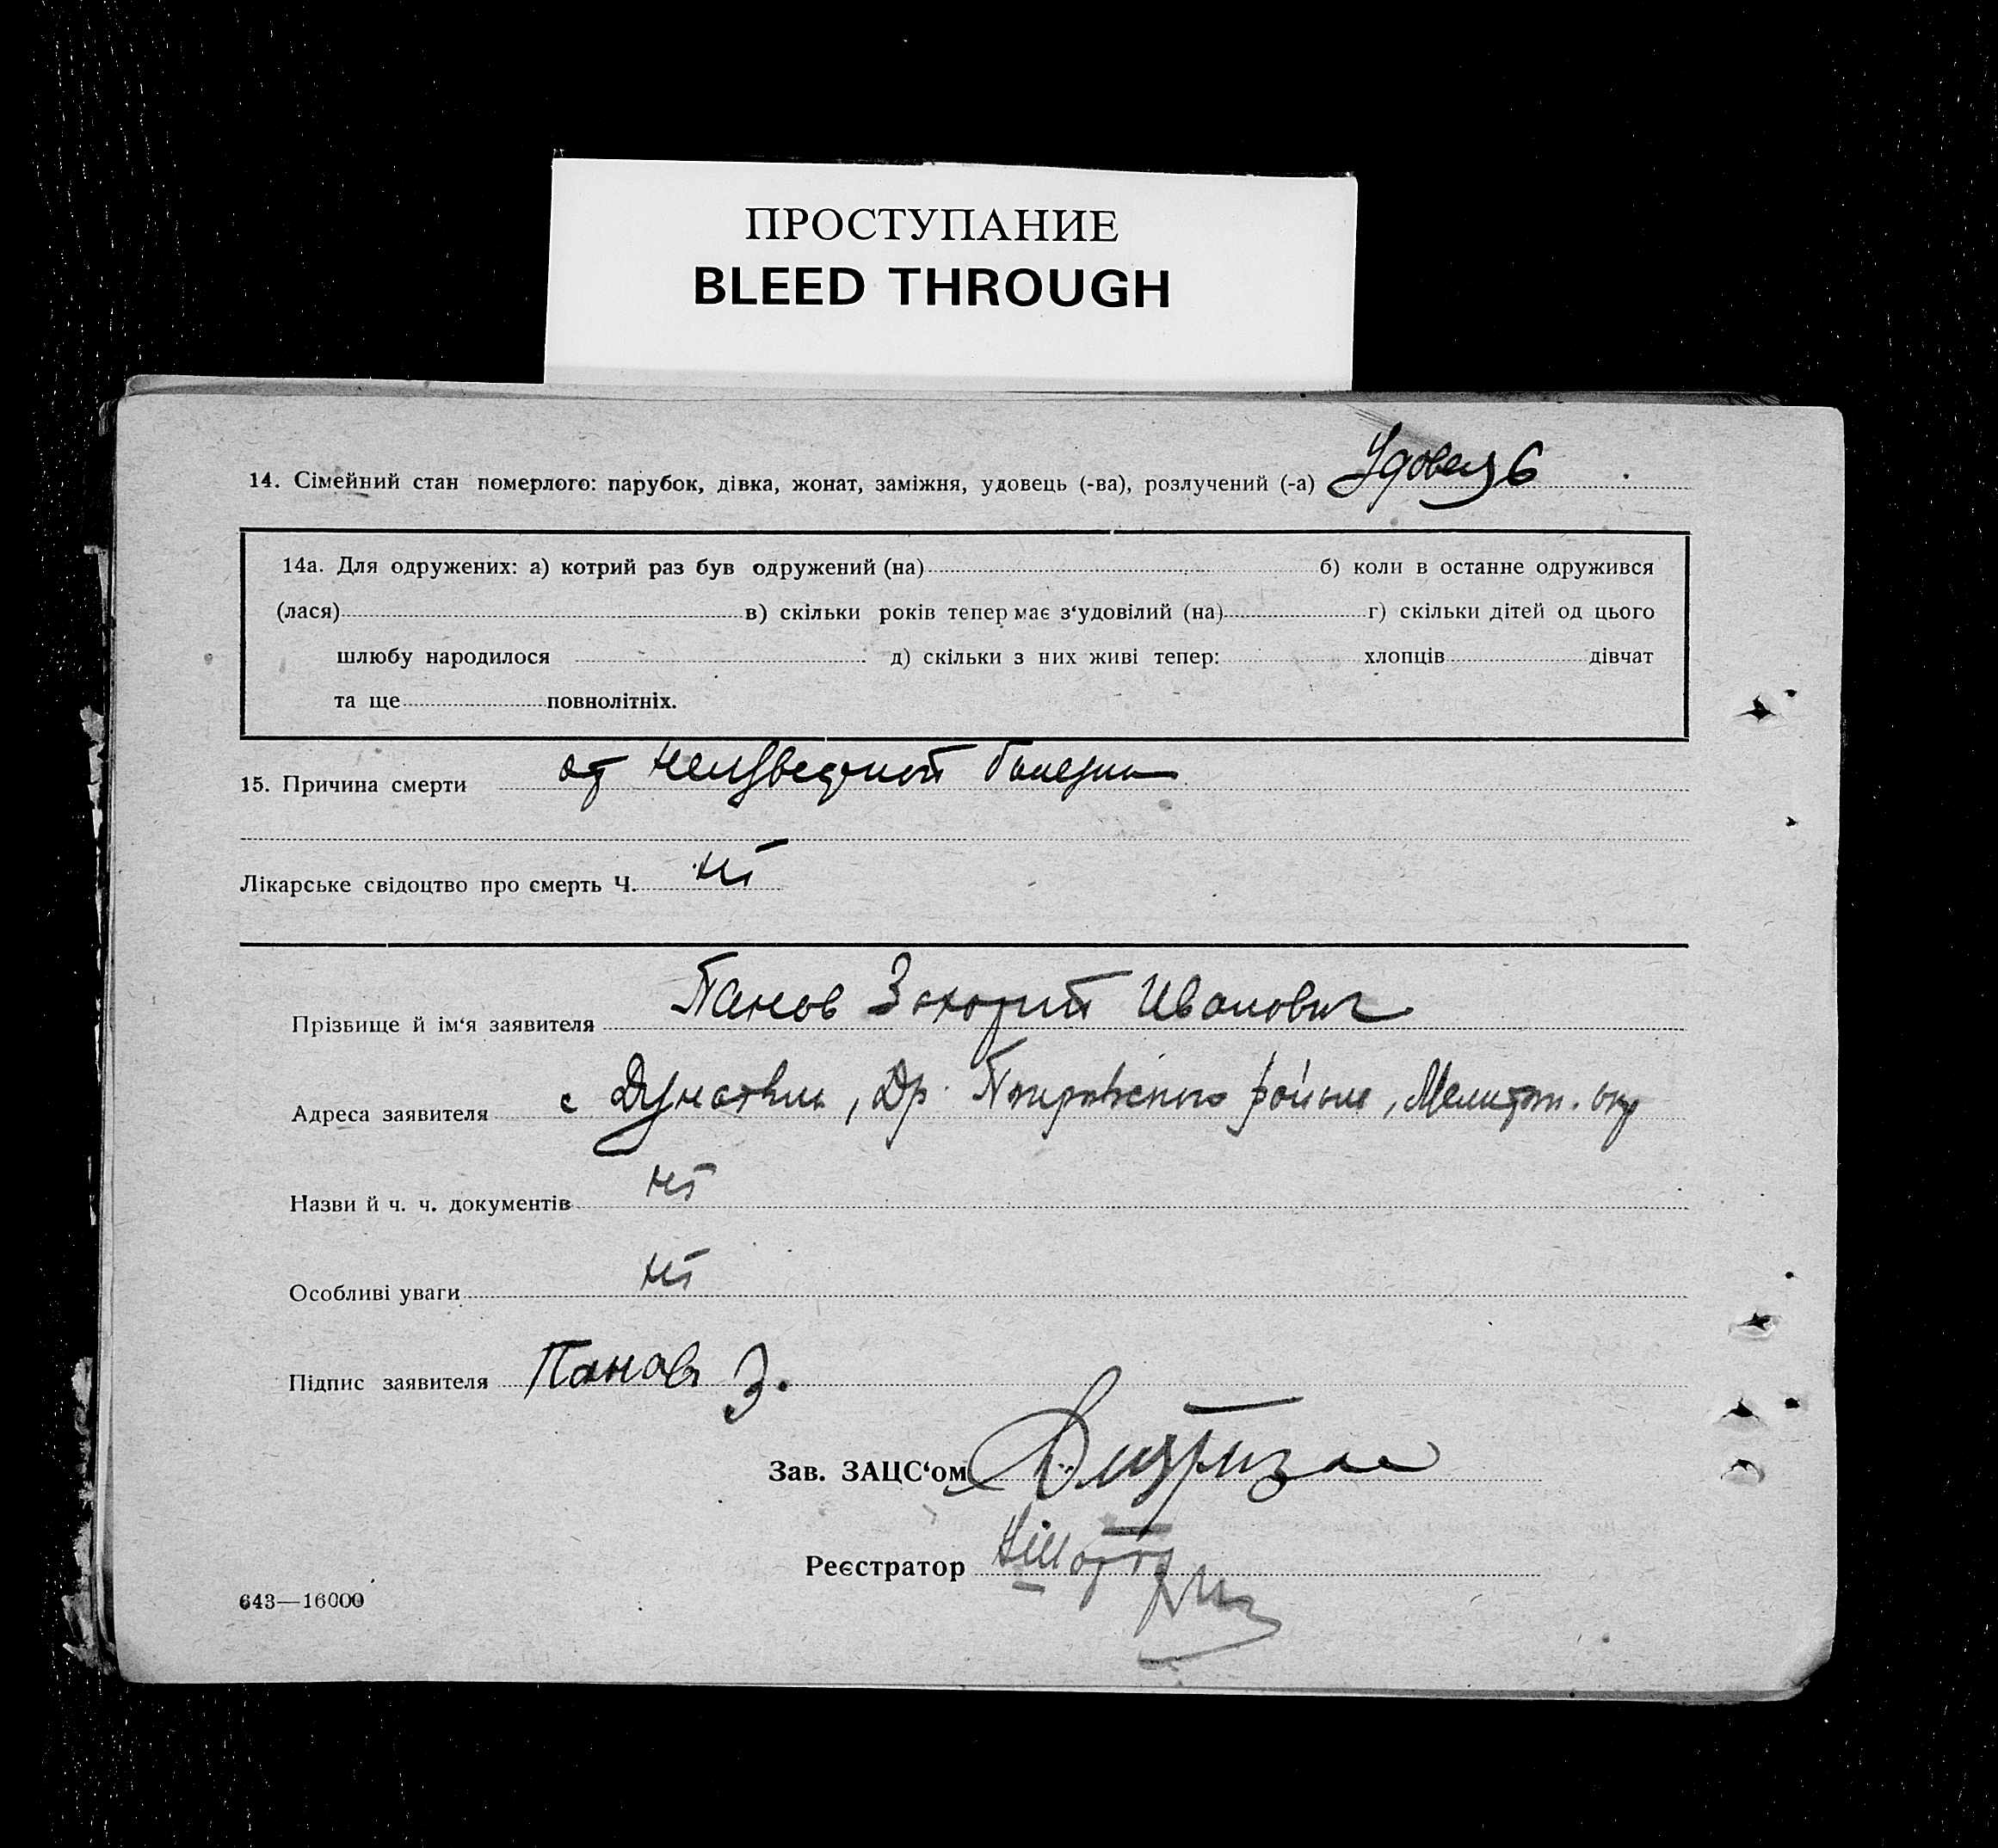 ПРОСТУПАНИЕ
BLEED THROUGH
14. Сімейний стан померлого: парубок, дівка, жонат, заміжня, удовець (-ва), розлучений (-а) Удовець
14а. Для одружених: а) котрий раз був одружений (на) б) коли в останне одружився
(лася) в) скільки років тепер має з'удовілий (на) г) скільки дітей од цього
шлюбу народилося д) скільки з них живі тепер: хлопців дівчат
та ще повнолітніх.
15. Причина смерти от неизвестной болезни
Лікарське свідоцтво про смерть Ч. ні
Прізвище й ім'я заявителя Панов Захарий Иванович
Адреса заявителя с , Др. района, Мелитоп. окр
Назви й ч. ч. документів ні
Особливі уваги ні
Підпис заявителя Панов З.
Зав. ЗАЦС'ом
Реєстратор
643—16000